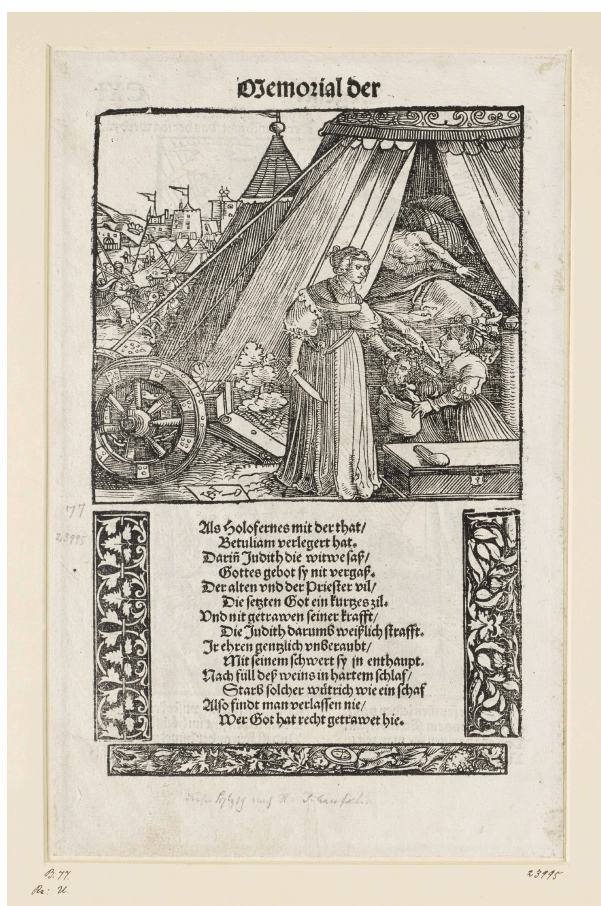 Memorial der
Als Holofernes mit der that/
Betuliam verlegert hat.
Dariñ Judith die witwe saß/
Gottes gebot sy nit vergaß.
Der alten vnd der Priester vil/
Die setzten Got ein kurtzes zil.
Vnd nit getrawen seiner krafft/
Die Judith darumb weißlich strafft.
Ir ehren gentzlich vnberaubt/
Mit seinem schwert sy jn enthaupt.
Nach füll deß weins in hartem schlaf/
Starb solcher wütrich wie ein schaf
Also findt man verlassen nie/
Wer Got hat recht getrawet hie.
77
23995
B. 77.
23995